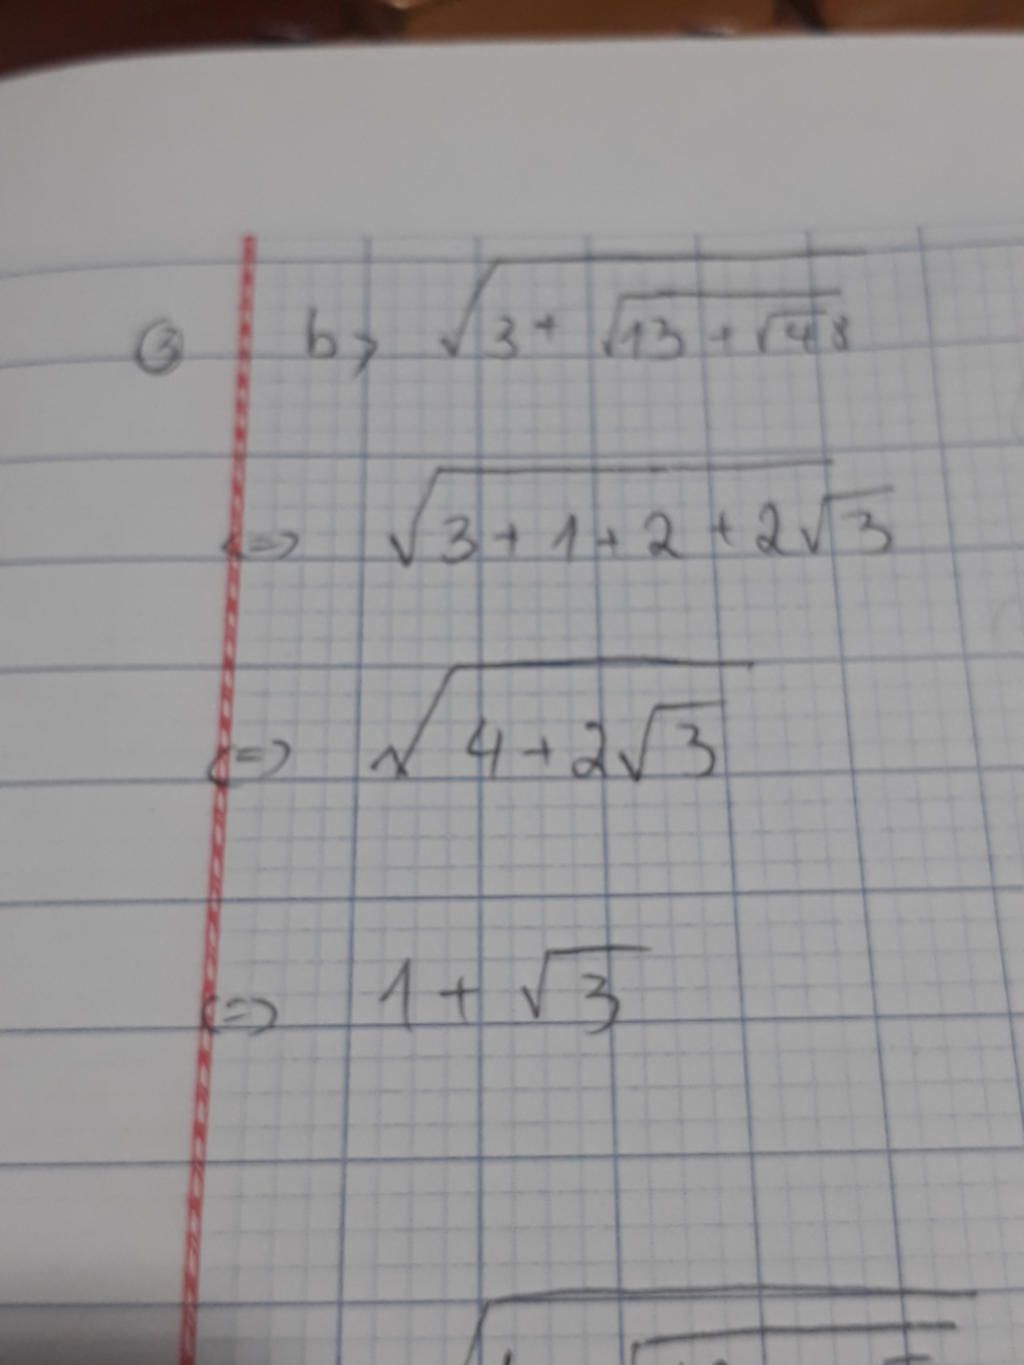 ③ b> √(3 + √(13 + √48))
<=> √(3 + 1 + 2 + 2√3)
<=> √(4 + 2√3)
<=> 1 + √3